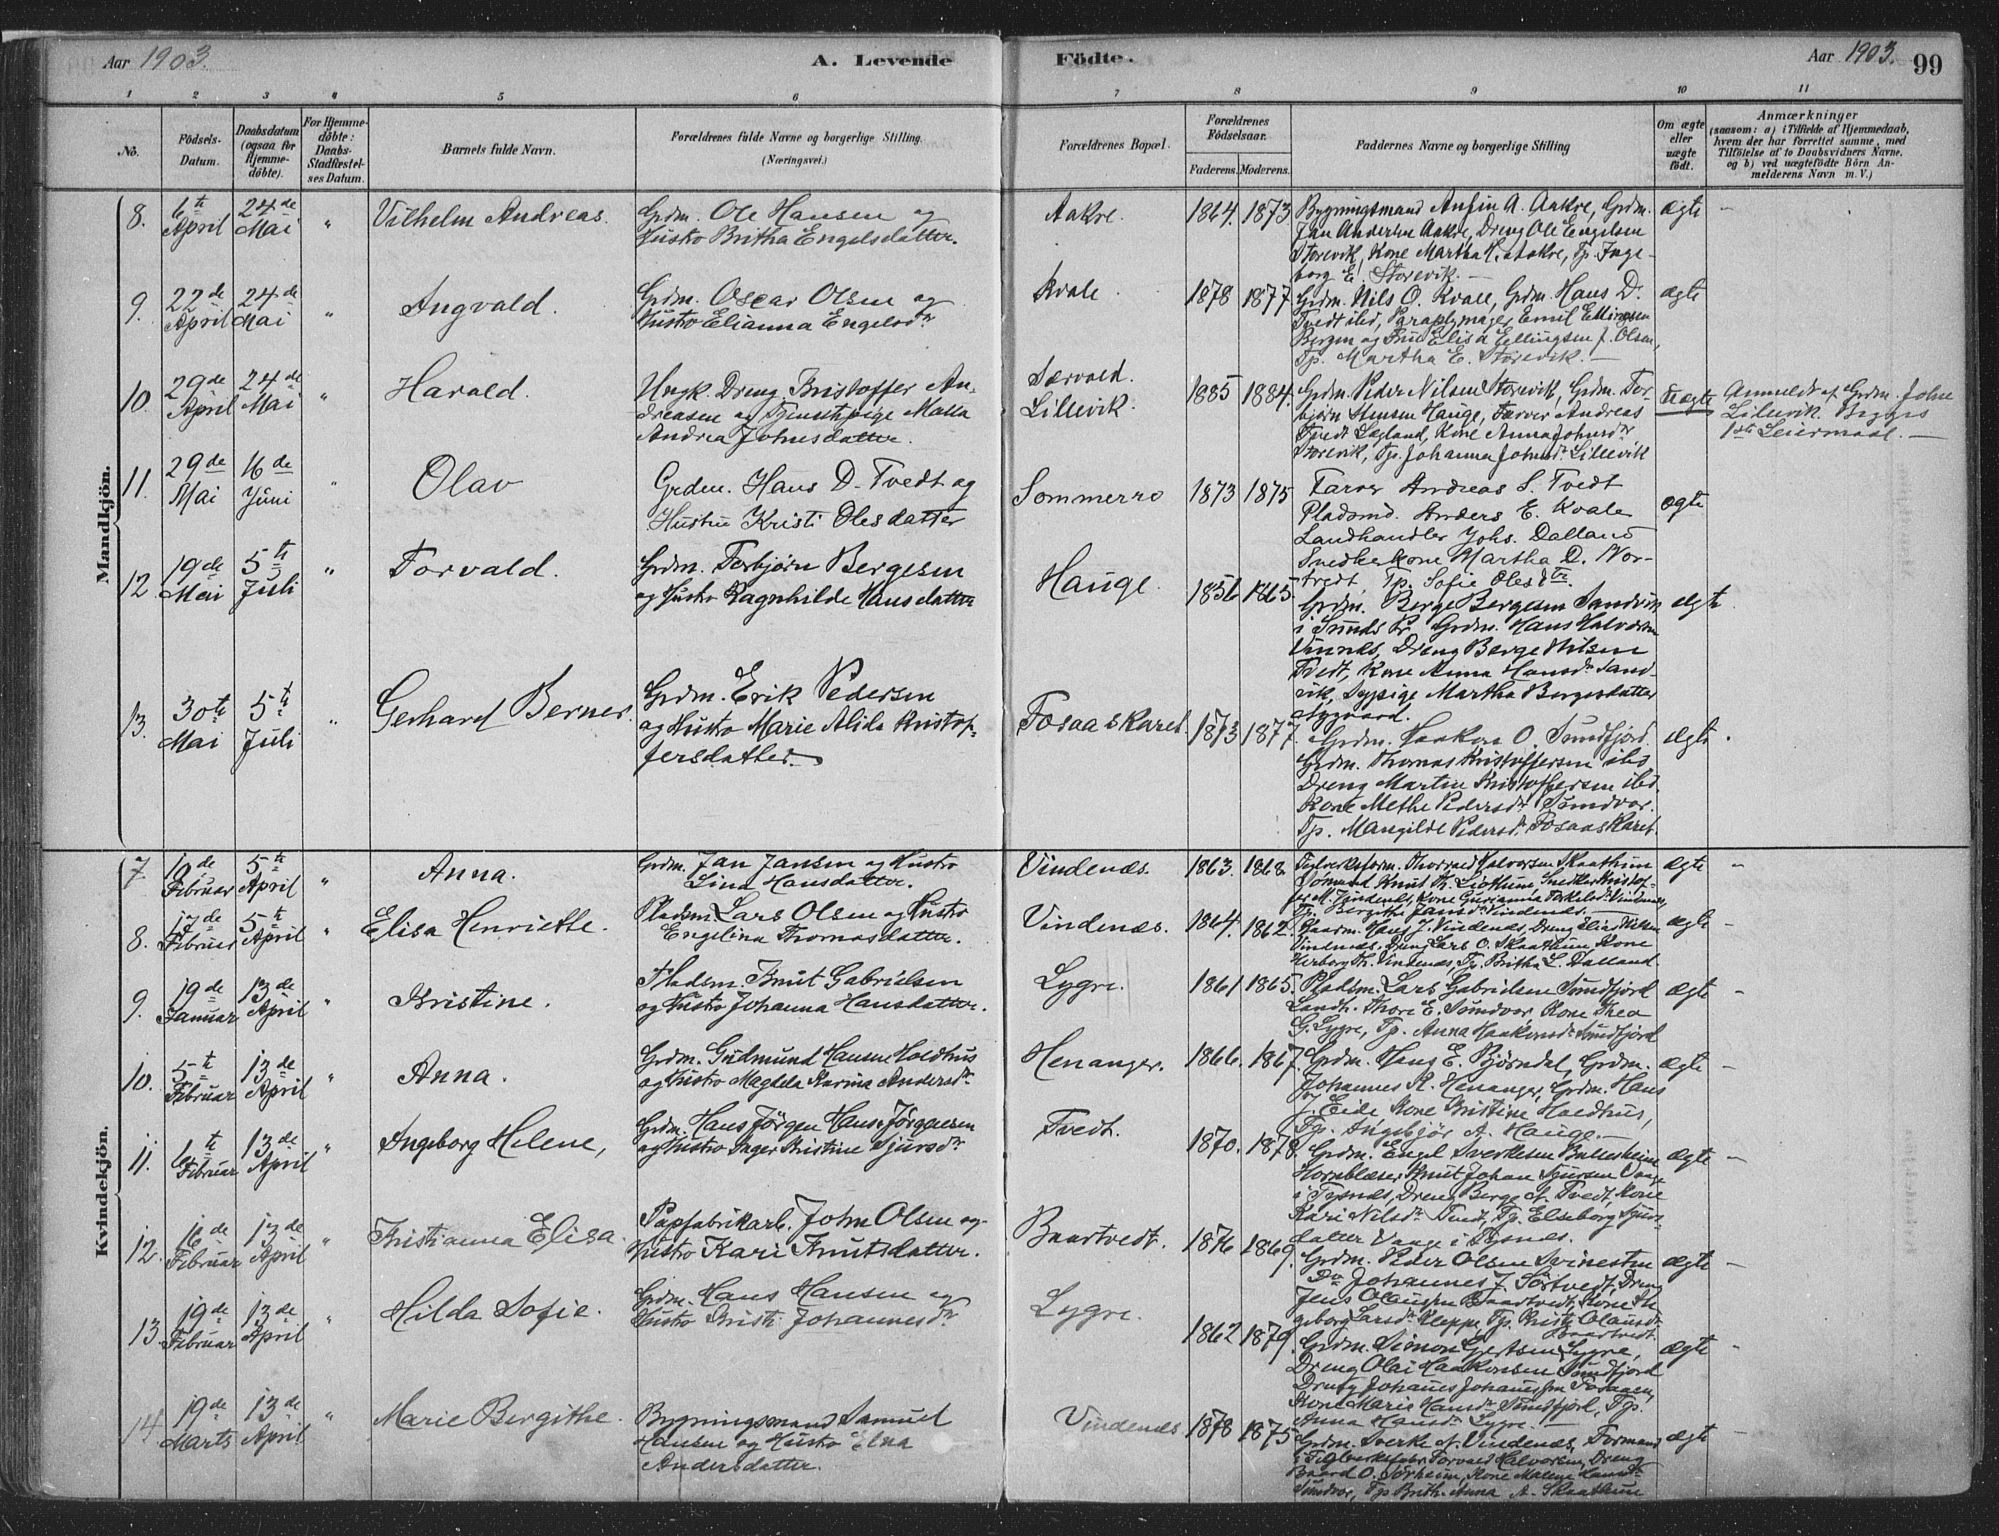 Aar 1903. A. Levende Födte. Aar 1903. 99
1 2 3 4 5 6 7 8 9 10 11
No. Födsels-Datum. Daabsdatum (ogsaa for Hjemme-döbte). For Hjemme-döbte: Daabs-Stadfæstel-ses Datum. Barnets fulde Navn. Forældrenes fulde Navne og borgerlige Stilling. (Næringsvei.) Forældrenes Bopæl. Forældrenes Födselsaar. Faderens. Moderens. Faddernes Navne og borgerlige Stilling Om ægte eller uægte födt. Anmærkninger (saasom: a) i Tilfælde af Hjemmedaab, hvem der har forrettet samme, med Tilföielse af to Daabsvidners Navne, og b) ved uægtefödte Börn An-melderens Navn m. V.)
Mandkjön.
8. 6te April 24de Mai " Vilhelm Andreas. Grdm. Ole Hansen og
Hustro Britha Engelsdatter.
Aakre. 1864. 1873 Bygningsmand Anfin A. Aakre, Grdm.
Jan Andersen Aakre, Dreng Ole Engelsen
Storevik, Kone Martha H. Aakre, Tp. Inge-
borg E. Storevik.—
ægte –
9. 22de April 24de Mai " Ingvald. Grdm. Oscar Olsen og
Hustro Elianna Engelsdr
Kvale 1878 1877 Grdm. Nils O. Kvale, Grdm. Hans D.
Tvedt ibd, Paraplymager Emil Ellingsen
Bergen og Fru Elisa Ellingsen f. Olsen,
Tp. Martha E. Storevik.—
ægte
10. 29de April 24de Mai " Harald. Ungk. Dreng Kristoffer An-
dreasen og Tjenestpige Malla
Andrea Johnsdatter.
Særvold.
Lillevik. 1885 1884. Grdm. Peder Nilsen Storevik, Grdm. Tor-
bjørn Stensen Hauge, Farver Andreas
Tvedt Kone Anna Johnsdr
Storevik, Tp. Johanna Johnsdr Lillevik
Uægte Anmeldt af Grdm. John
Lillevik. Begges
1ste Leiermaal.—
11. 29de Mai 16de Juni " Olav Grdm. Hans D. Tvedt og
Hustru Kristi Olesdatter
Sommerro 1873 1875 Farver Andreas S. Tvedt
Pladsmd. Anders E. Kvale
Landhandler Johs. Dalland
Snedkerkone Martha D. Nor-
tvedt, Tp. Sofie Olesdtr.
ægte
12. 19de Mai 5te Juli " Torvald. Grdm. Torbjørn Bergesen
og Hustro Ragnhilde Hansdatter
Hauge. 1856 1865. Grdm. Berge Bergesen Sandvik
i Sunds Pr. Grdm. Hans Halvorsen
Vinnes, Dreng Berge Nilsen
Tvedt, Kone Anna Hansdr Sand-
vik, Sypige Martha Bergesdatter
Nygaard.
ægte
13. 30te Mai 5te Juli " Gerhard Berner. Grdm. Erik Pedersen
og Hustro Marie Alida Kristof-
fersdatter.
Fosaaskaret. 1873 1877. Grdm. Haakon O. Sundfjord.
Grdm. Thomas Kristoffersen ibd
Dreng Martin Kristoffersen ibd.
Kone Methe Pedersdr Sundvor.
Tp. Mangilde Pedersdr Fosaaskaret.
ægte .
Kvindekjön.
7 10de Februar 5te April " Anna. Grdm. Jan Jansen og Hustro
Lina Hansdatter.
Vindenæs. 1863. 1868 Teglverksform. Thorvald Halvorsen Skaathun
Sømand Knut Th. Snedker Kristof-
fer M. Vindenæs, Kone Gurianna Torkelsdr Vindenæs,
Tp. Bergithe Jansdr Vindenes.—
ægte –
8. 17de Februar 5te April " Elisa Henriette. Pladsm. Lars Olsen og Hustro
Engelina Thomasdatter.
Vindenæs. 1864. 1862. Gaardm. Hans J. Vindenæs, Dreng Elias Nilsen
Vindenæs. Dreng Lars O. Skaathun Kone
Herborg Th. Vindenæs, Tp. Britha L. Dalland.
ægte –
9. 19de Januar 13de April " Kristine. Pladsm. Knut Gabrielsen
og Hustro Johanna Hansdatter.
Lygre. 1861 1865. Pladsm. Lars Gabrielsen Sundfjord
Landh. Thore E. Sundvor, Kone Thea
G. Lygre, Tp. Anna Haakonsdr Sundfjord
ægte –
10. 5te Februar 13de April " Anna. Grdm. Gudmund Hansen Holdhus
og Hustro Magdela Karina Andersdr.
Henanger. 1866. 1867. Grdm. Hans E. Bjørndal, Grdm.
Johannes K. Henanger, Grdm. Hans
J. Eide Kone Kristine Holdhus,
Tp. Ingebjør A. Hauge.—
ægte –
11. 6te Februar 13de April " Ingeborg Helene, Grdm. Hans Jørgen Hans. Jørgensen
og Hustro Inger Kristine Sjursdr
Tvedt. 1870. 1878. Grdm. Engel Sverkesen Buttesheim
Hornblæser Knut Johan Sjursen Vaage
i Tysnæs, Dreng Berge N. Tvedt, Kone
Kari Nilsdr Tvedt, Tp. Elseborg Sjurs-
datter Vaage i Tysnes.
ægte –
12. 16de Februar 13de April " Kristianna Elisa. Papfabrikarb. John Olsen og
Hustro Kari Knutsdatter.
Baartvedt. 1876 1869. Grdm. Peder Olsen Svinestræ
Do Johannes J. Sörtvedt, Dreng
Jens Olausen Baartvedt, Kone In-
geborg Larsdr Kleppe, Tp. Kristi Olausdr
Baartvedt.
ægte –
13. 19de Februar 13de April " Hilda Sofie. Grdm. Hans Hansen og
Hustro Kristi Johannesdr
Lygre. 1862 1879. Grdm. Simon Gertsen Lygre,
Dreng Olai Haakonsen Sundfjord
Dreng Johanes Johanessen
Kone Marie Hansdr Sundfjord, Tp.
Anna Hansdr Lygre.—
ægte –
14 19de Marts 13de April " Marie Bergithe. Bygningsmand Samuel
Hansen og Hustro Elna
Andersdatter.
Vindenæs 1878 1875 Grdm. Sverke N. Vindenæs, Formand
i Teglverksfabr. Torvald Halvorsen, Dreng
Baard O. Sørheim, Kone Malene
Sundvor, Tp Brith. Anna A. Skaathun
ægte –